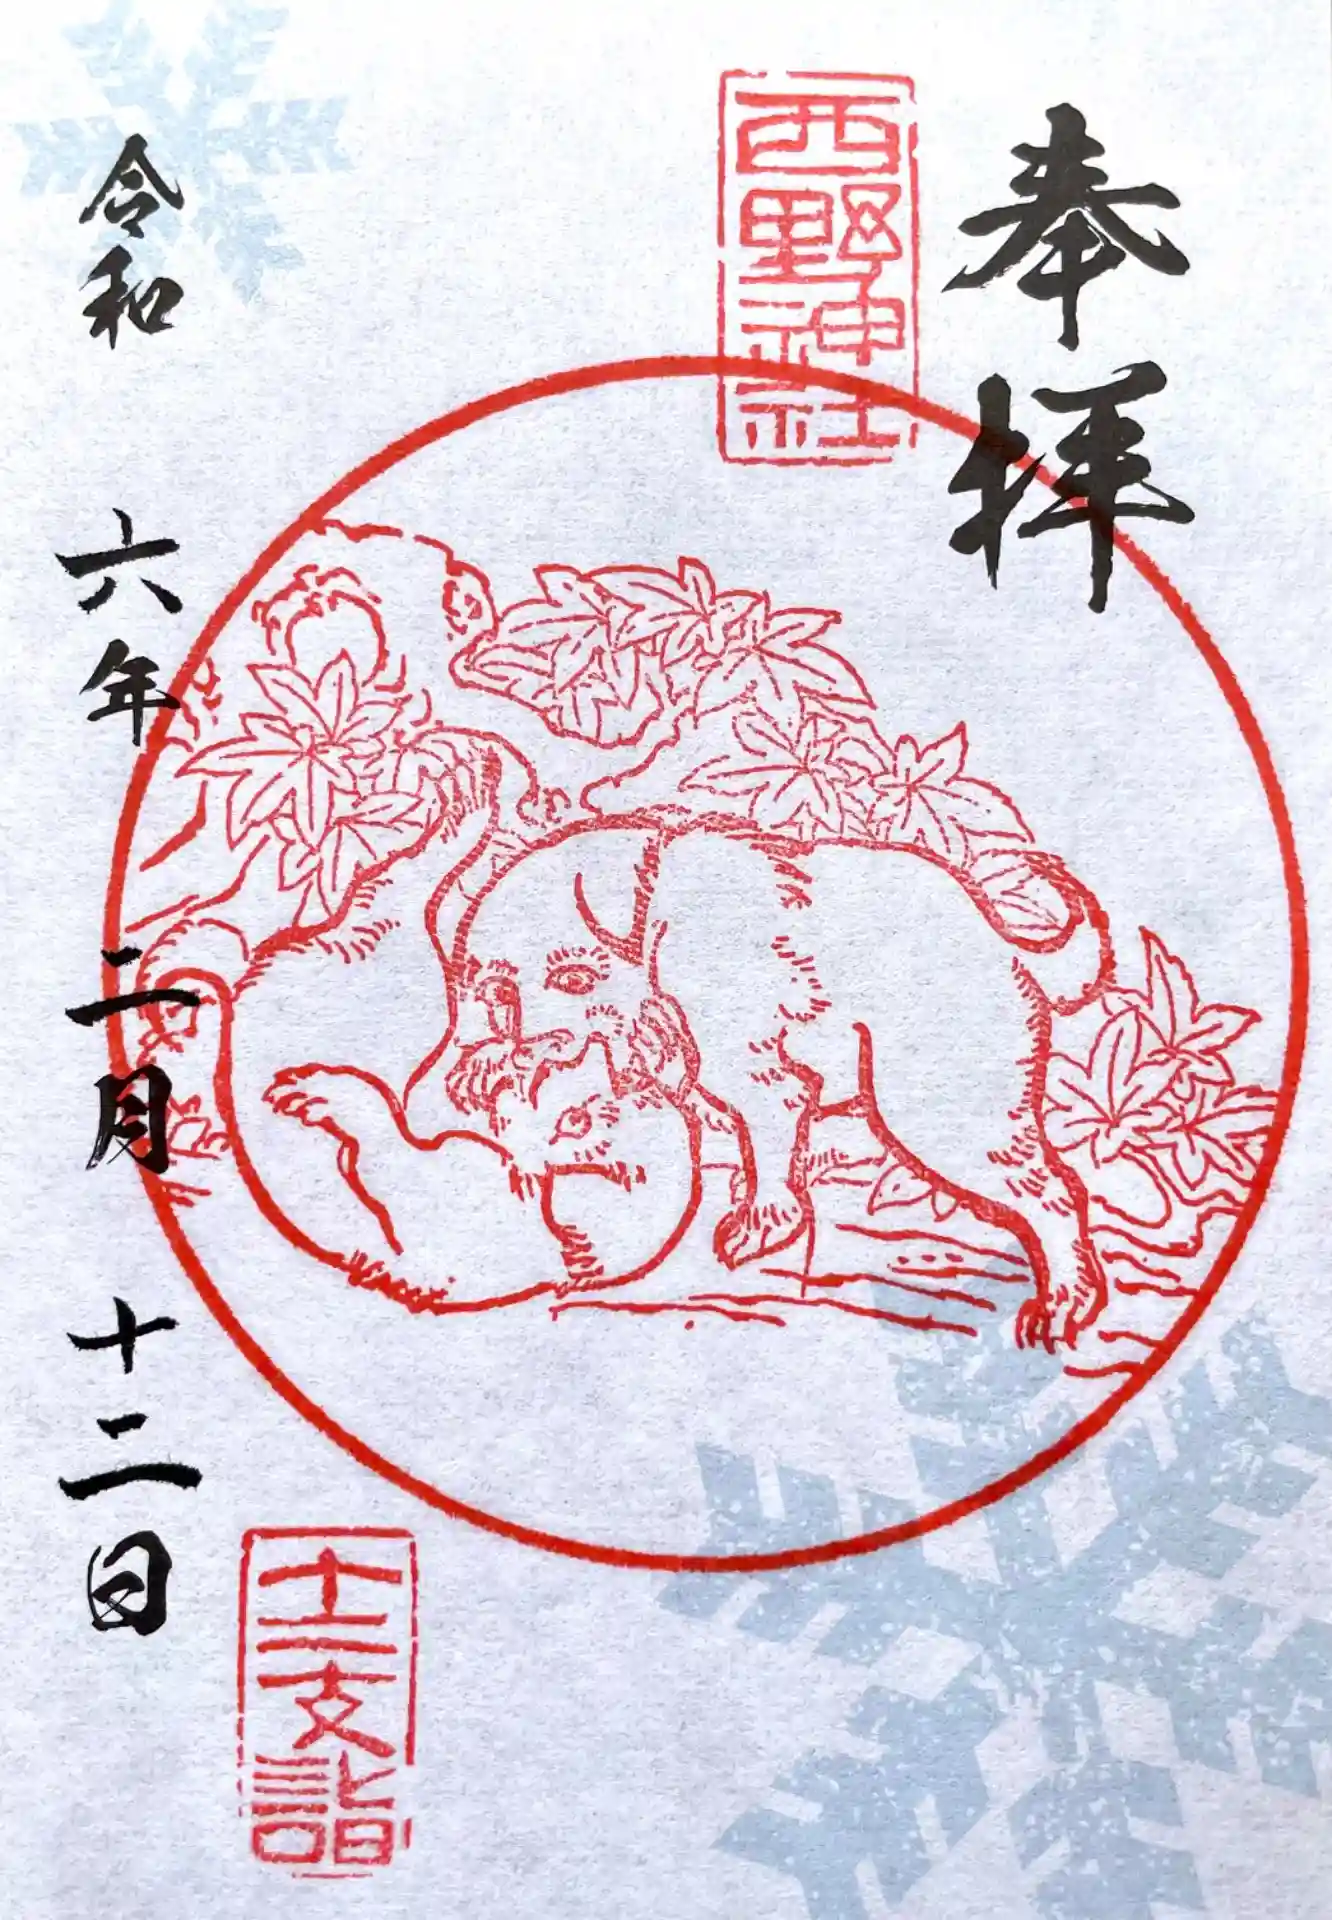 奉拝
西野神社
令和六年二月十二日
十二支詣